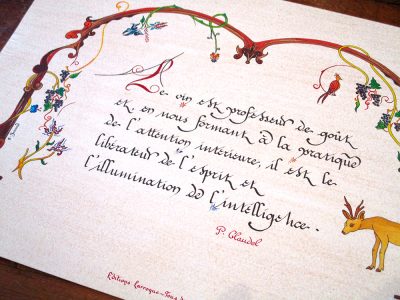 Le vin est professeur de goût
et en nous formant à la pratique
de l'attention intérieure, il est le
libérateur de l'esprit et
l'illumination de l'intelligence.
P. Claudel
Editions Larroque-Tous d